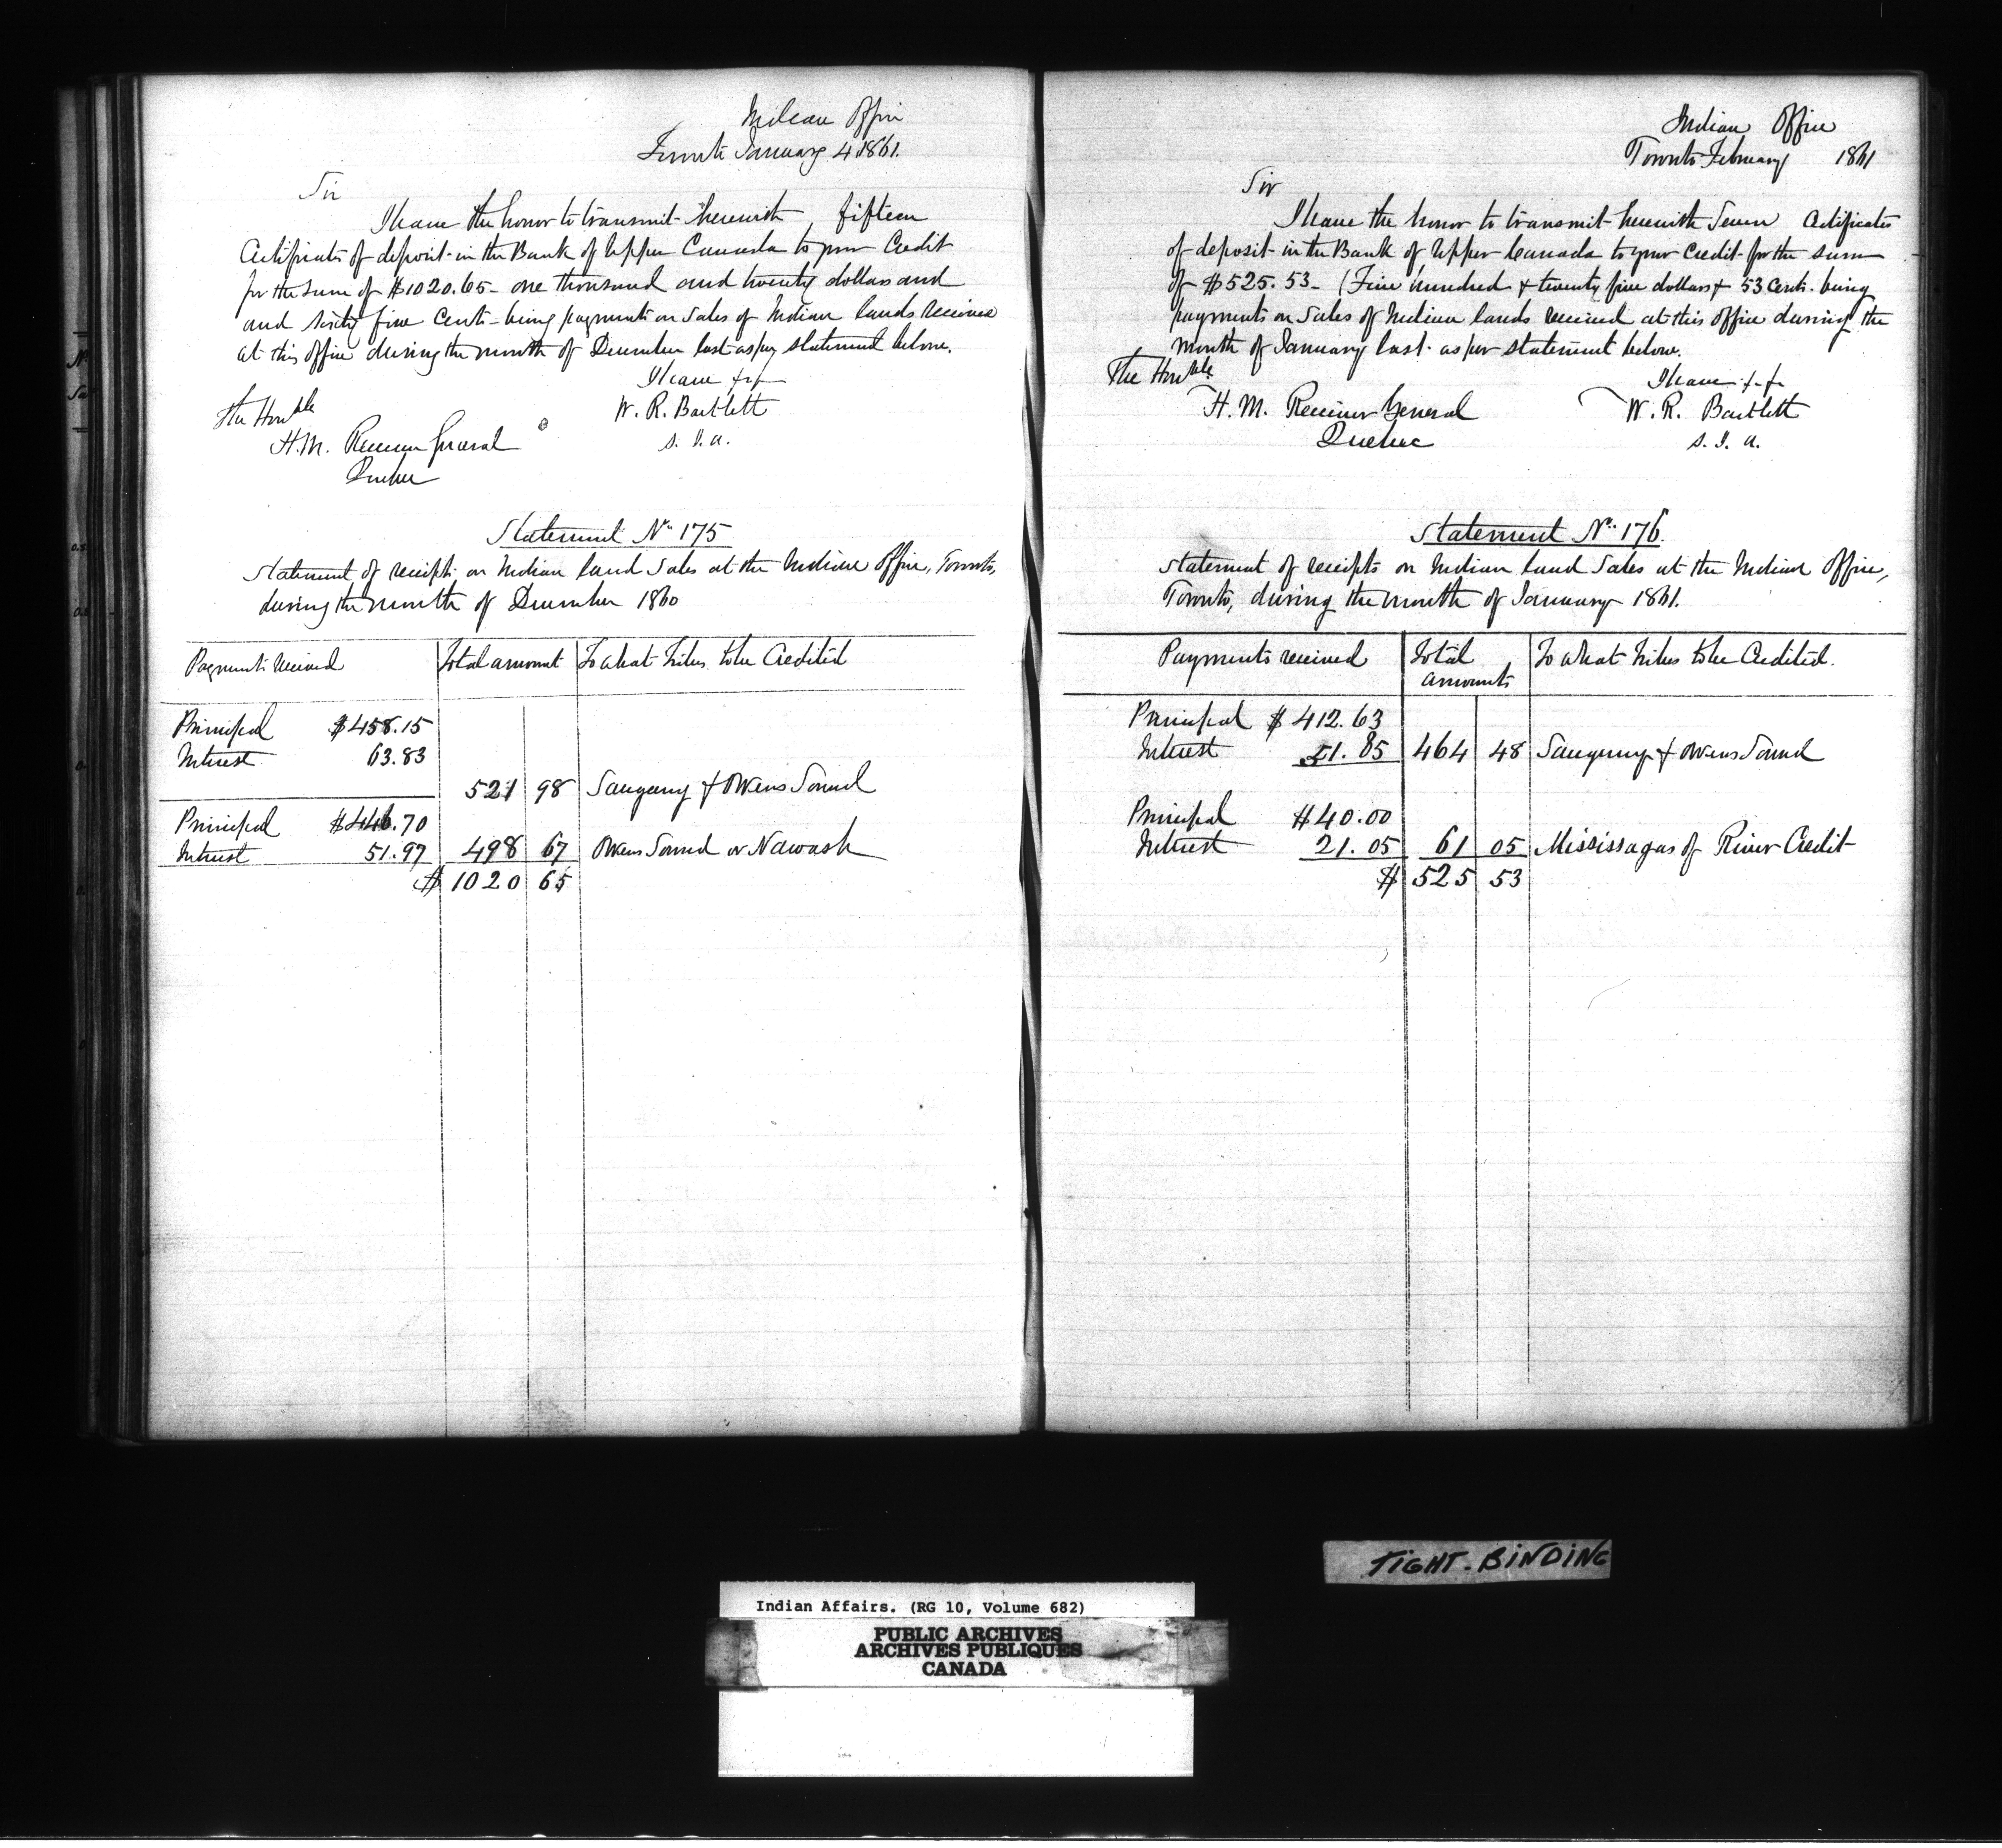 Indian Office
Toronto January 4 1861.
Sir
I have the honor to transmit herewith, fifteen
Certificates of deposit in the Bank of Upper Canada to your Credit
for the sum of $1020.65 - one thousand and twenty dollars and
and sixty five cents - being payments on sales of Indian lands received
at this office during the month of December last as per statement below.
I have &c &c
W. R. Bartlett
S. I. A.
The Honble
H. M. Receiver General
Quebec
Statement No. 175
Statement of receipts on Indian land sales at the Indian Office, Toronto,
during the month of December 1860
Payments received Total amount To what tribes to be Credited
Principal $458.15
Interest 63.83
521 98 Saugeeng & Owens Sound
Principal $446.70
Interest 51.97 498 67 Owens Sound or Nawash
$ 1020 65
Indian Office
Toronto February 1861
Sir
I have the honor to transmit herewith Seven Certificates
of deposit in the Bank of Upper Canada to your Credit for the sum
of $525.53 - (Five hundred & twenty five dollars & 53 cents. being
payments on sales of Indian lands received at this office during the
month of January last as per statement below.
I have &c &c
W. R. Bartlett
S. I. A.
The Honble.
H. M. Receiver General
Quebec
Statement No. 176.
Statement of receipts on Indian land sales at the Indian Office,
Toronto, during the month of January 1861.
Payments received Total amounts To what tribes to be Credited.
Principal $ 412.63
Interest 51.85 464 48 Saugeeng & Owens Sound
Principal $40.00
Interest 21.05 61 05 Mississagas of River Credit
$ 525 53
TIGHT. BINDING
Indian Affairs. (RG 10, Volume 682)
PUBLIC ARCHIVES
ARCHIVES PUBLIQUES
CANADA